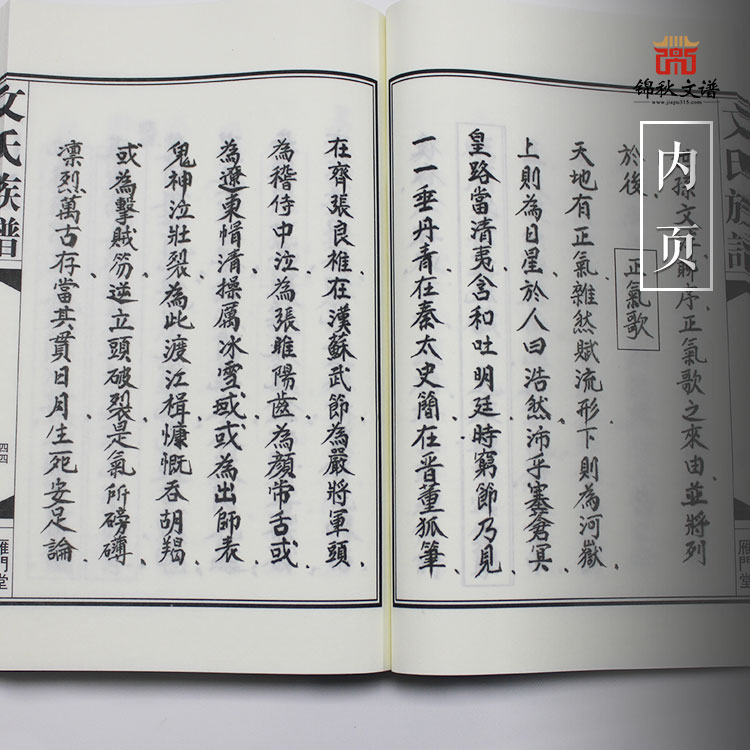 锦秋文谱
www.jiapu315.com
内页
文氏族譜
採文
序正氣歌之來由並將列
於後
正氣歌
天地有正氣雜然賦流形下則為河嶽
上則為日星於人曰浩然沛乎塞蒼冥
皇路當清夷含和吐明廷時窮節乃見
一一垂丹青在秦太史簡在晋董狐筆
雁門堂
在齊張良椎在漢蘇武節為嚴將軍頭
為稽侍中泣為張睢陽齒為顏常舌或
為遼東帽清操厲冰雪或或為出師表
鬼神泣壯裂為此渡江楫慷慨吞胡羯
或為擊賊笏逆立頭破裂是氣所磅礡
凛烈萬古存當其貫日月生死安足論
文氏族譜
四四
雁門堂